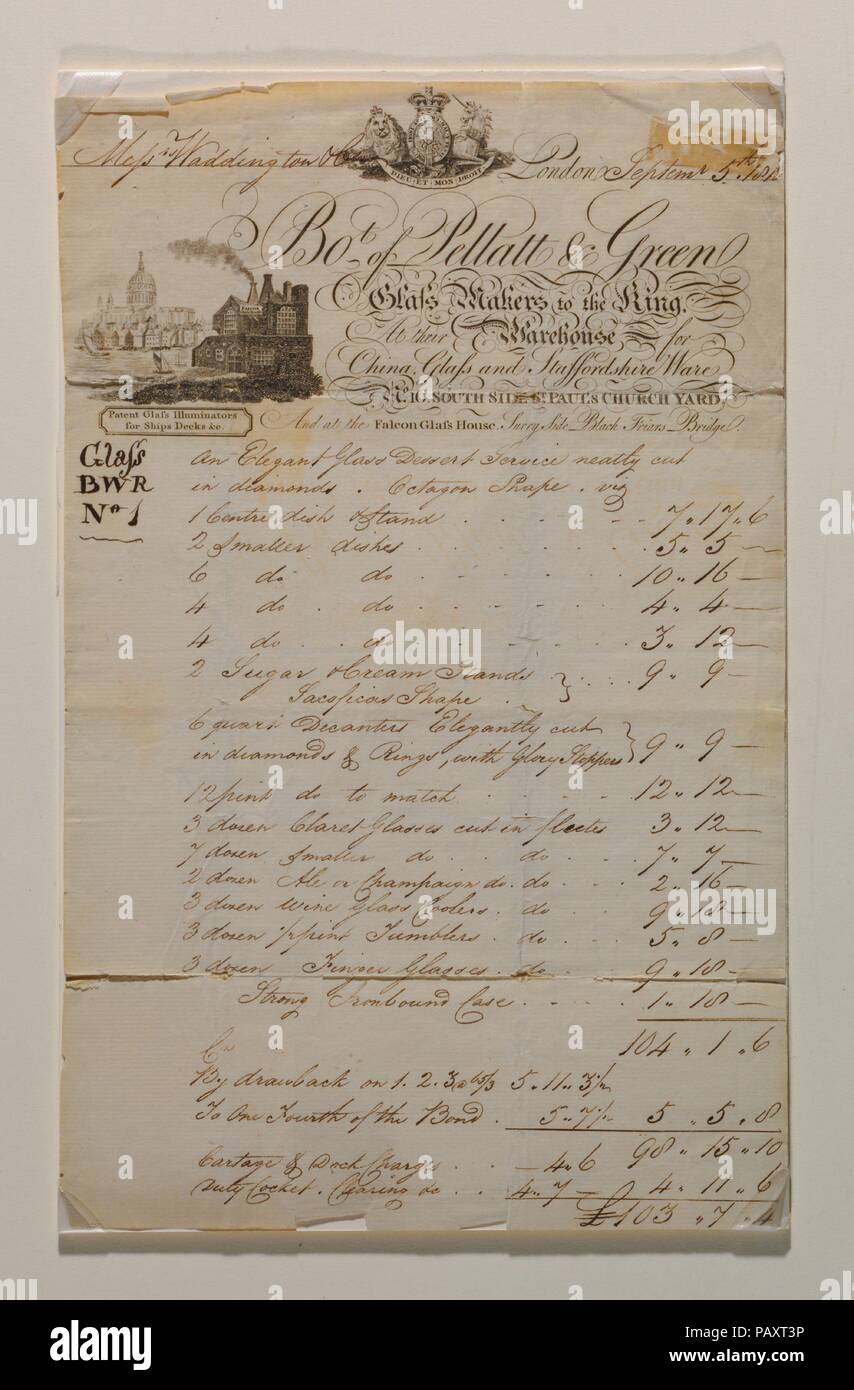 Mess.rs Waddington & Co
DIEU·ET·MON·DROIT
London Septem.r 5.th
Bo.t of Pellatt & Green
Glass Makers to the King.
At their Warehouse, for
China, Glass and Staffordshire Ware
No. 16, SOUTH SIDE ST PAULS CHURCH YARD.
Patent Glass Illuminators
for Ships Decks &c.
And at the Falcon Glass House, Surry Side Black Friars Bridge.
Glass
BWR
No 1
An Elegant Glass Dessert Service neatly cut
in diamonds . Octagon Shape . viz
1 Centre dish & Stand 7 „ 17 „ 6
2 Smaller dishes 5 „ 5 —
6 do do 10 „ 16 —
4 do . do 4 „ 4 —
4 do . do 3 „ 12 —
2 Sugar & Cream Stands 9 „ 9 —
Shape
6 quart Decanters Elegantly cut
in diamonds & Rings, with Stoppers } 9 „ 9 —
12 pint do to match 12 „ 12 —
3 dozen Claret Glasses cut in flutes 3 „ 12 —
7 dozen Smaller do . . do 7 „ 7 —
2 dozen Ale or Champaign do . do 2 „ 16 —
3 dozen Wine Glass Coolers . do 9 „ 18 —
3 dozen pint Tumblers . do 5 „ 8 —
3 dozen Finger Glasses . do 9 „ 18 —
Strong Ironbound Case 1 „ 18 —
104 „ 1 „ 6
By drawback on 1. 2. 3 5 „ 11 „
To One Fourth of the Bond . 5 „ 5 „ 8
98 „ 15 „ 10
Cartage & Dock Charges . . — 4 „ 6
Duty Cocket . Clearing &c . . 4 „ 7 — 4 „ 11 „ 6
£103 „ 7 „ 4
alamy
alamy stock photo
Image ID: PAXT3P
www.alamy.com